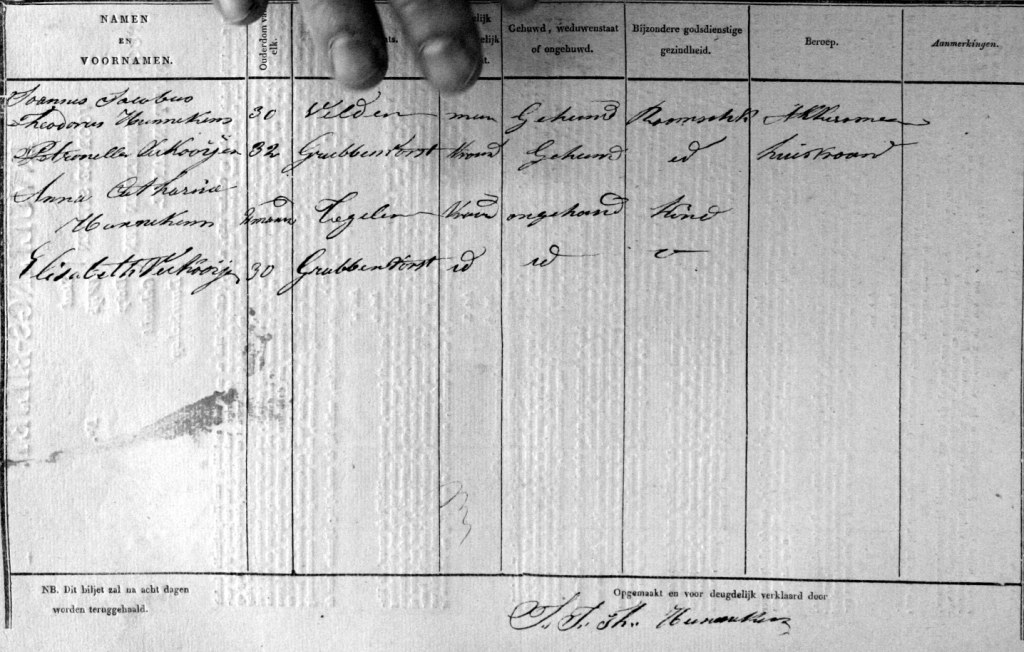 NAMEN Ouderdom van Gehuwd, weduwenstaat Bijzondere godsdienstige Beroep. Aanmerkingen.
EN elk. of ongehuwd. gezindheid.
VOORNAMEN.
Joannes Jacobus
Theodorus Hunnekens 30 Velden man Gehuwd Roomsch Akkerman
Petronella Verkooijen 32 Grubbenvorst vrouw Gehuwd id huisvrouw
Anna Catharina
Hunnekens Tegelen vrou ongehuwd kind
Elisabeth Verkooijen 30 Grubbenvorst id id
NB. Dit biljet zal na acht dagen
worden teruggehaald.
Opgemaakt en voor deugdelijk verklaard door
J. J. Th. Hunnekens